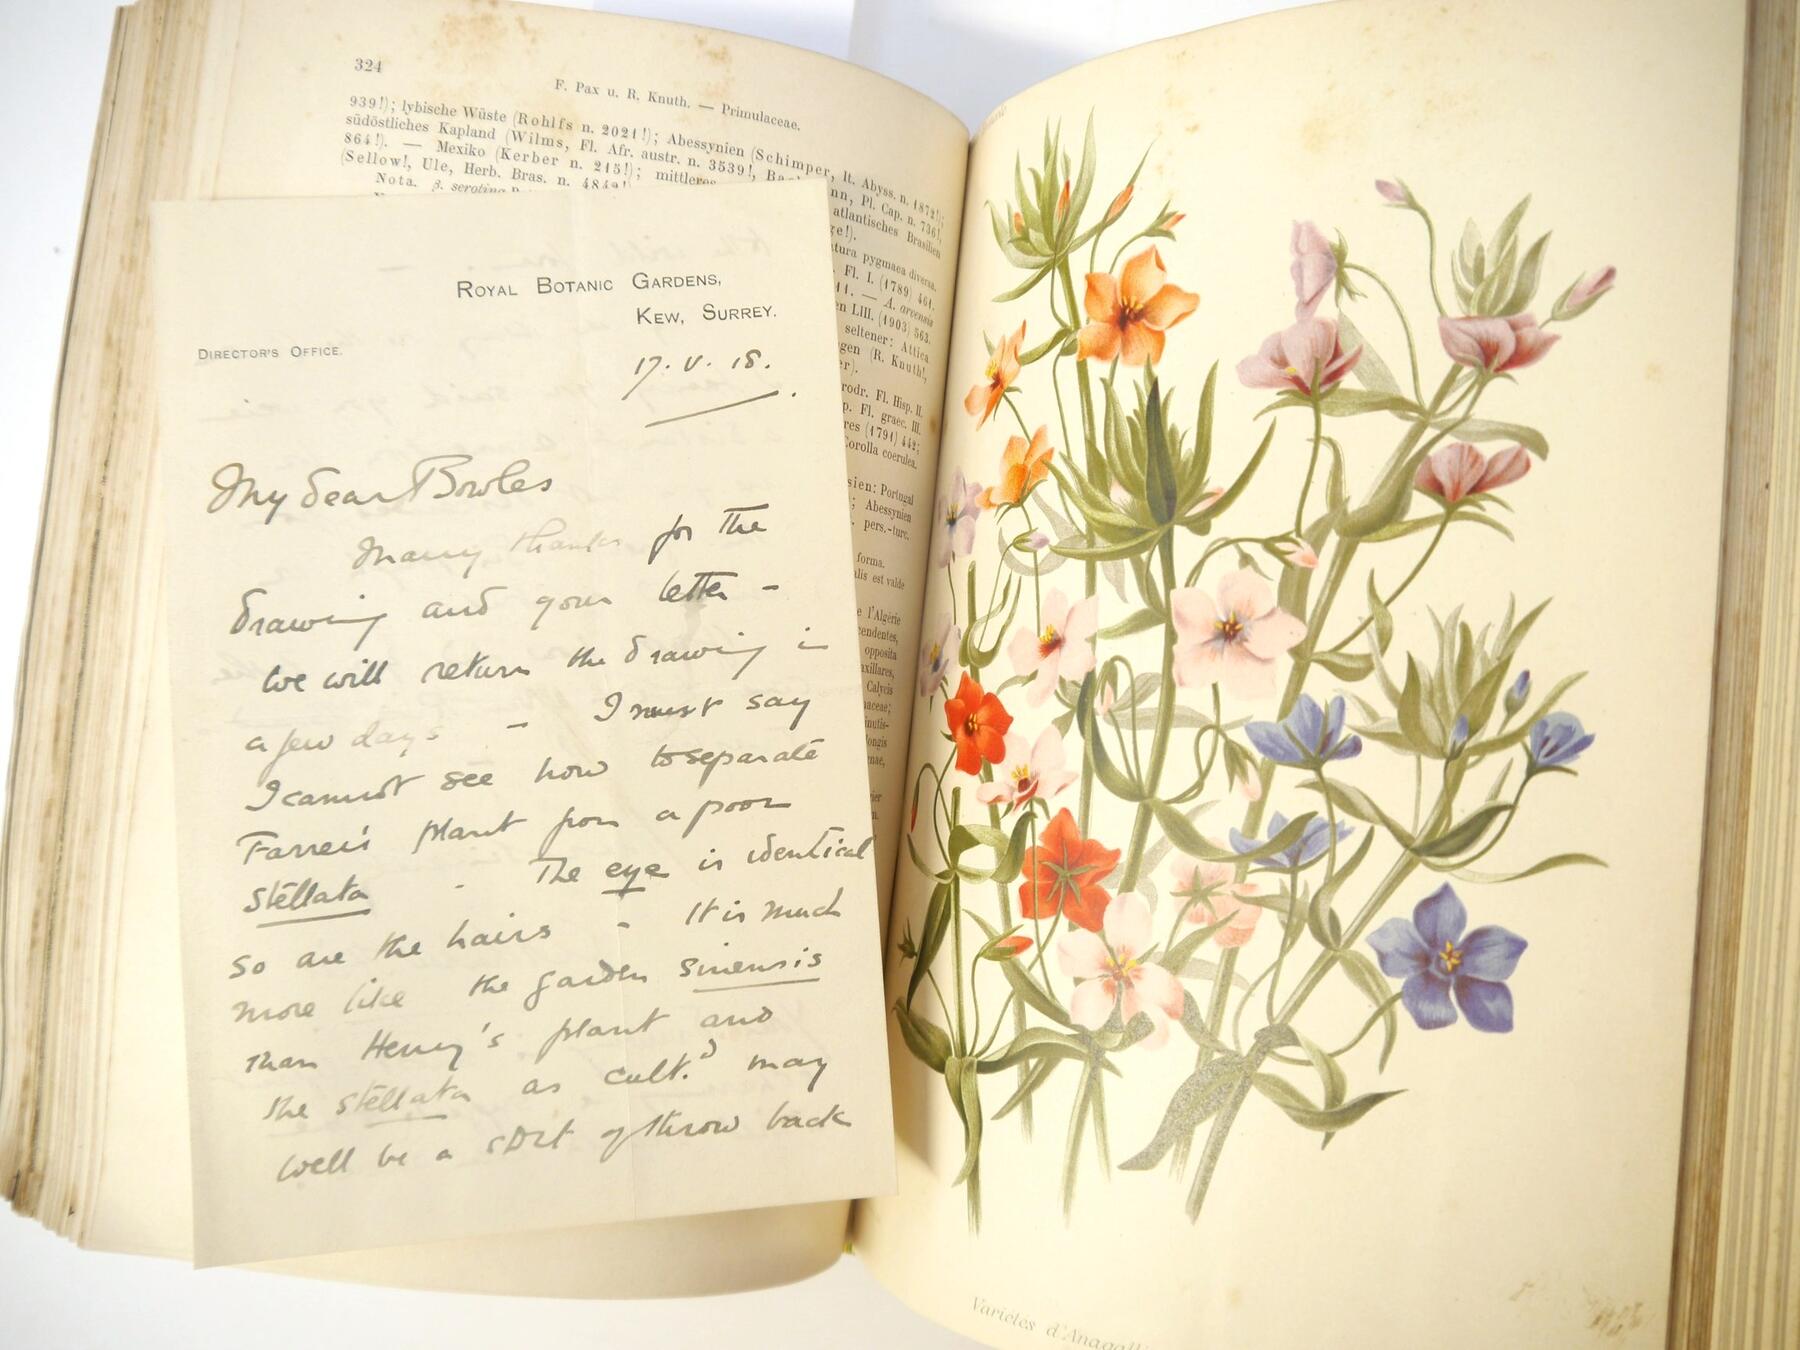 324
F. Pax u. R. Knuth. — Primulaceae.
939!); lybische Wüste (Rohlfs n. 2021!); Abessynien (Schimper, It. Abyss. n. 1872!);
südöstliches Kapland (Wilms, Fl. Afr. austr. n. 3539!, Bachmann, Pl. Cap. n. 736!,
864!). — Mexiko (Kerber n. 215!); mittleres atlantisches Brasilien
(Sellow!, Ule, Herb. Bras. n. 4849!
Nota. β. serotina
tura pygmaea diversa.
Fl. I. (1789) 461.
11. — A. arvensis
en LIII. (1903) 563.
seltener: Attica
gen (R. Knuth!,
er).
rodr. Fl. Hisp. II.
p. Fl. graec. III.
res (1791) 442;
Corolla coerulea.
sien: Portugal
; Abessynien
. pers.-turc.
forma.
alis est valde
e l'Algérie
cendentes,
opposita
axillares,
Calycis
naceae;
inutis-
longis
ROYAL BOTANIC GARDENS,
KEW, SURREY.
DIRECTOR'S OFFICE.
17. V. 18.
My dear Bowles
Many thanks for the
drawing and your letter –
We will return the drawing in
a few days – I must say
I cannot see how to separate
Farrer's plant from a poor
stellata - The eye is identical
so are the hairs – It is much
more like the garden sinensis
than Henry's plant and
the stellata as cult.d may
well be a sort of throw back
Variétés d'Anagalli